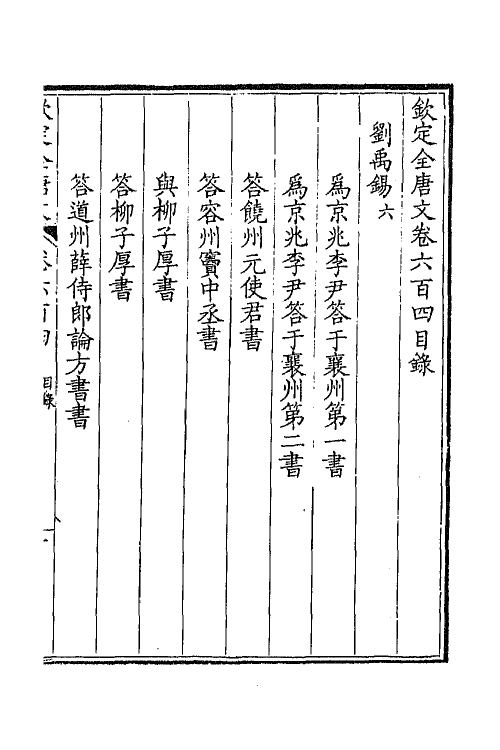 欽定全唐文卷六百四目錄
劉禹錫六
爲京兆李尹答于襄州第一書
爲京兆李尹答于襄州第二書
答饒州元使君書
答容州竇中丞書
與柳子厚書
答柳子厚書
答道州薛侍郎論方書書
欽定全唐文 卷六百四 目錄 一